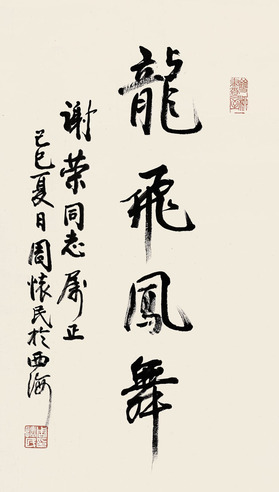 龍飛鳳舞
谢荣同志属正
己巳夏日周怀民於西海